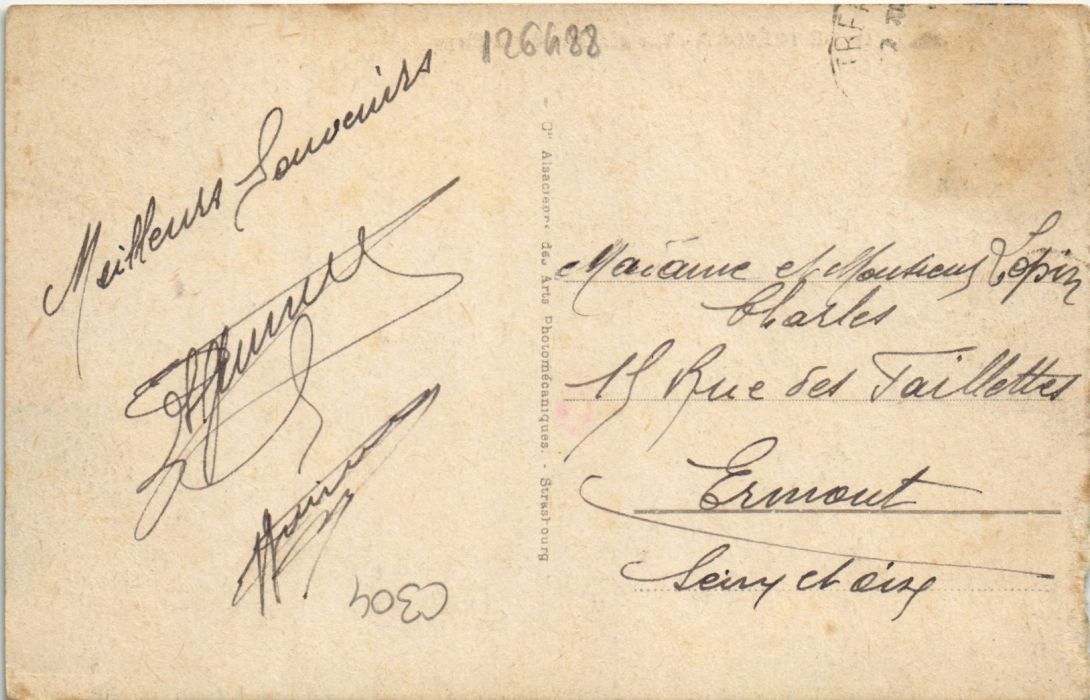 126488
TREF
Meilleurs Souvenirs
- Cie Alsacienne des Arts Photomécaniques. - Strasbourg
Madame et Monsieur Lopin
Charles
15 Rue des Taillettes
Ermont
Seine et oise
C304